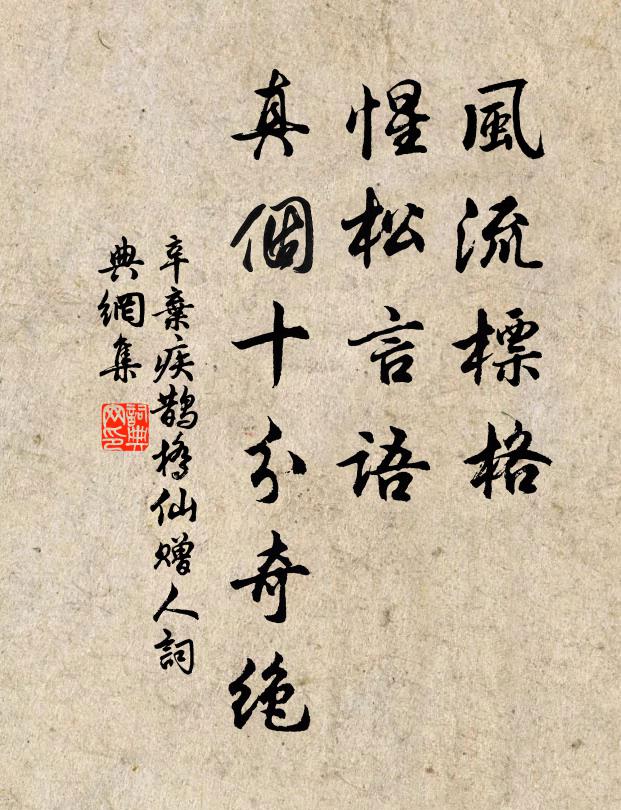 風流標格
惺松言語
真個十分奇絶
辛棄疾鵲橋仙贈人詞
典網集
詞典
网印